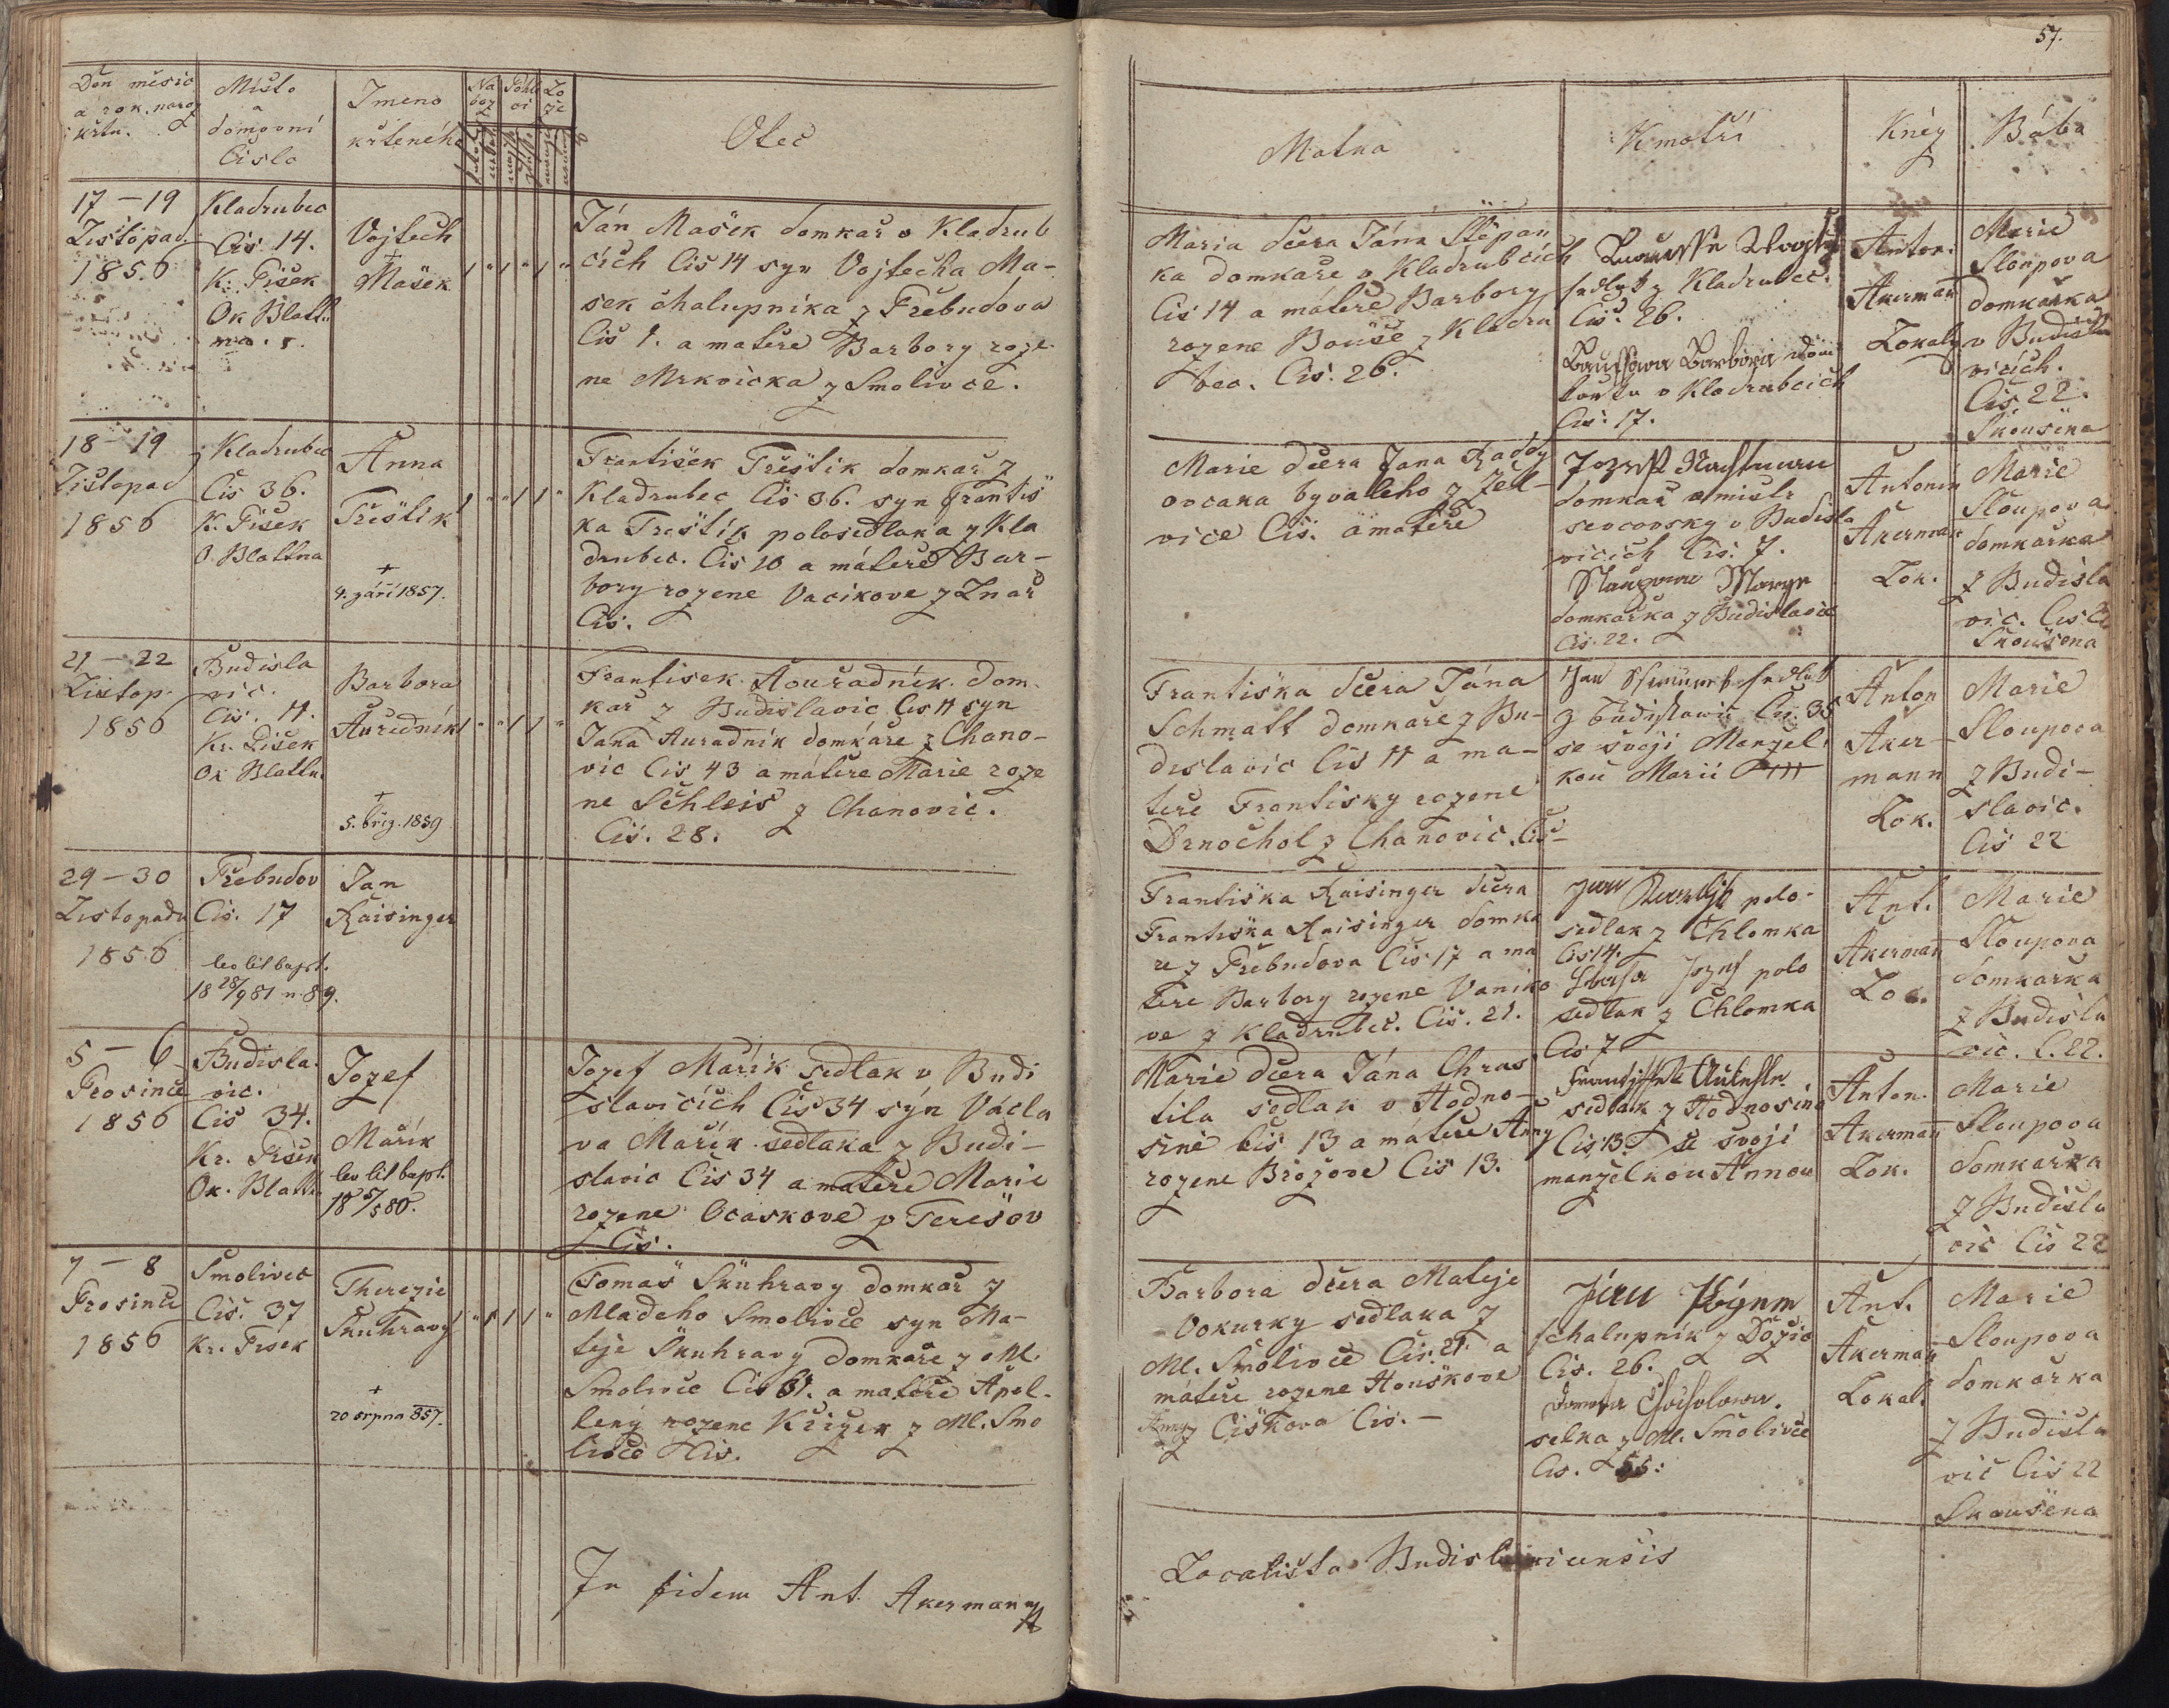 57.
Den měsíc
a rok naroz
i křtu.
Místo
a
domovní
Číslo
Jmeno
křteného
Na
boz
Pohla
ví
Lo
že
Otec
Matka
Kmotři
Kněz
Bába
17 – 19
Listopad
1856
Kladrubec
Čis 14.
Kr. Pisek
Ok Blatt
na.
Vojtech
+
Mašek
Ján Mašek domkař v Kladrub
cích Čis 14 syn Vojtecha Ma-
šek chalupníka z Přebudova
Čis 1. a matere Barbory roze-
ne Mrkvicka z Smolivce.
Maria dcera Jána Štěpan
ka domkaře v Kladrubcích
Čis 14 a mateře Barbory
rozene Bouše z Kladru
bec. Čis. 26.
sedlak z Kladrubec.
Čis. 26.
Barbora dom
karka v Kladrubcich
Čis. 17.
Anton.
Akerman
Lokal
Marie
Sloupova
domkařka
v Budisla
vicích.
Čis 22.
Skoušena
18 – 19
Listopad
1856
z Kladrubec
Čis 36.
K. Pisek
O. Blattna
Anna
Třeštik
+
4. září 1857.
František Třeštik domkař z
Kladrubec Čis 36. syn Františ
ka Treštik polosedlaka z Kla
drubec. Čis 10 a máteře Bar-
bory rozene Vacikove z Lnař
Čis.
Marie dcera Jana Rady
ovcaka byvaleho z Žel-
vice Čis. a mateře
Jozef
domkař a mistr
sevcovsky v Budisla
vicich Čis. 7.
domkařka z Budislavic
Čis. 22.
Antonin
Akerman
Lok.
Marie
Sloupova
domkařka
z Budisla
vic. Čis 22
Skoušena
21 – 22
Listop.
1856
Budisla
vic.
Čis. 11.
Kr. Pisek
Ok Blattn.
Barbora
Auředník
+
5. břez. 1859
Frantisek Aouřadník dom-
kař z Budislavic Čis 11 syn
Jana Auradnik domkáre z Chano-
vic Čis 43 a mátere Marie roze
ne Schleis z Chanovic.
Čis. 28.
Františka dcera Jána
Schmatt domkaře z Bu-
dislavic Čis 11 a ma-
teře Frantisky rozene
Drnochol z Chanovic. Čis-
Jan sedlak
z Budislawic Čis. 35
se svoji Manzel
kou Marii +++
Anton
Aker-
mann
Lok.
Marie
Sloupova
z Budi-
slavic.
Čis 22
29 – 30
Listopadu
1856
Přebudov
Čis. 17
lev lit bapt.
18 28/9 81 n 89.
Jan
Raisinger
Františka Raisinger dcera
Františka Raisinger domka
re z Přebudova Čis 17 a ma
tere Barbory rozene Vaniko
ve z Kladrubec. Čis. 21.
Jan polo-
sedlak z Chlomka
Čis 14.
Jozef polo
sedlak z Chlomka
Čis 7
Ant.
Akerman
Lok.
Marie
Sloupova
domkarka
z Budisla
vic. Č. 22.
5 – 6
Prosince
1856
Budisla-
vic.
Čis 34.
Kr. Pisek
Ok. Blattn
Jozef
Mařík
lev lit bapt.
18 5/5 80.
Jozef Mařík sedlak v Budi
slavicích Čis 34 sýn Václa
va Mařík sedlaka z Budi-
slavic Čis 34 a matere Marie
rozene Ocaskove z Teresov
Čis.
Marie dcera Jána Chras
tila sedlak v Hodno-
sině čis 13 a máteře Anny
rozene Brožove Čis 13.
sedlak z Hodnosina
Čis 13. se svoji
manzelkou Annou
Anton.
Akerman
Lok.
Marie
Sloupova
domkařka
z Budisla
vic Čis 22
7 – 8
Prosince
1856
Smolivec
Čis. 37
Kr. Pisek
Therezie
Skuhravy
+
20 srpna 857.
Tomaš Skuhravy domkar z
Mladeho Smolivce syn Ma-
teje Skuhravy domkaře z Ml.
Smolivce Čis 31. a mateře Apol-
leny rozene Křižek z Ml. Smo
livce Čis.
Barbora dcera Mateje
Vokurky sedlaka z
Ml. Smolivce Čis. 21. a
máteře rozene Houškove
Anny z Čiškova Čis. –
chalupník z Dožic
Čis. 26.
selka z Ml. Smolivce
Čis. 55.
Ant.
Akerman
Lokal.
Marie
Sloupova
domkarka
z Budisla
vic Čis 22
Skoušena
In fidem Ant. Akermann
Localista Budislaviensis